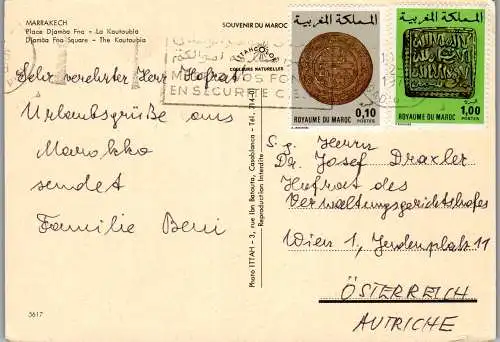 MARRAKECH
Place Djamâa Fna - La Koutoubia
Djamâa Fna Square - The Koutoubia
SOUVENIR DU MAROC
COULEURS NATURELLES
EN SÉCURITÉ
Sehr verehrter Herr Hofrat
Urlaubsgrüße aus
Marokko
sendet
Familie Beni
5617
Photo ITTAH - 3, rue Ibn Batouta, Casablanca - Tél.
Reproduction Interdite
المملكة المغربية
ROYAUME DU MAROC
0,10
POSTES
المملكة المغربية
1,00
ROYAUME DU MAROC
POSTES
S. g. Herrn
Dr. Josef Draxler
Hofrat des
Verwaltungsgerichtshofes
Wien 1, Judenplatz 11
ÖSTERREICH
AUTRICHE